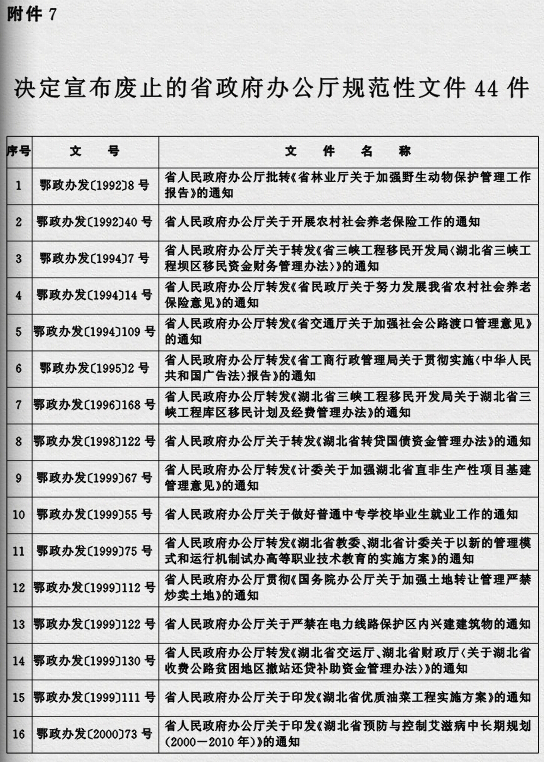 附件7
决定宣布废止的省政府办公厅规范性文件44件
序号 文号 文件名称
1 鄂政办发〔1992〕8号 省人民政府办公厅批转《省林业厅关于加强野生动物保护管理工作
报告》的通知
2 鄂政办发〔1992〕40号 省人民政府办公厅关于开展农村社会养老保险工作的通知
3 鄂政办发〔1994〕7号 省人民政府办公厅关于转发《省三峡工程移民开发局〈湖北省三峡工
程坝区移民资金财务管理办法〉》的通知
4 鄂政办发〔1994〕14号 省人民政府办公厅转发《省民政厅关于努力发展我省农村社会养老
保险意见》的通知
5 鄂政办发〔1994〕109号 省人民政府办公厅转发《省交通厅关于加强社会公路渡口管理意见》
的通知
6 鄂政办发〔1995〕2号 省人民政府办公厅转发《省工商行政管理局关于贯彻实施〈中华人民
共和国广告法〉报告》的通知
7 鄂政办发〔1996〕168号 省人民政府办公厅转发《湖北省三峡工程移民开发局关于湖北省三
峡工程库区移民计划及经费管理办法》的通知
8 鄂政办发〔1998〕122号 省人民政府办公厅关于转发《湖北省转贷国债资金管理办法》的通知
9 鄂政办发〔1999〕67号 省人民政府办公厅转发《计委关于加强湖北省直非生产性项目基建
管理意见》的通知
10 鄂政办发〔1999〕55号 省人民政府办公厅关于做好普通中专学校毕业生就业工作的通知
11 鄂政办发〔1999〕75号 省人民政府办公厅转发《湖北省教委、湖北省计委关于以新的管理模
式和运行机制试办高等职业技术教育的实施方案》的通知
12 鄂政办发〔1999〕112号 省人民政府办公厅贯彻《国务院办公厅关于加强土地转让管理严禁
炒卖土地》的通知
13 鄂政办发〔1999〕122号 省人民政府办公厅关于严禁在电力线路保护区内兴建建筑物的通知
14 鄂政办发〔1999〕130号 省人民政府办公厅转发《湖北省交运厅、湖北省财政厅〈关于湖北省
收费公路贫困地区撤站还贷补助资金管理办法〉》的通知
15 鄂政办发〔1999〕111号 省人民政府办公厅关于印发《湖北省优质油菜工程实施方案》的通知
16 鄂政办发〔2000〕73号 省人民政府办公厅关于印发《湖北省预防与控制艾滋病中长期规划
（2000－2010年）》的通知